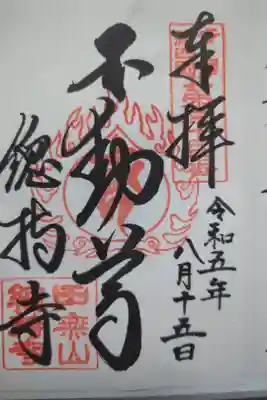 奉拝
令和五年
八月十五日
不動尊
總持寺